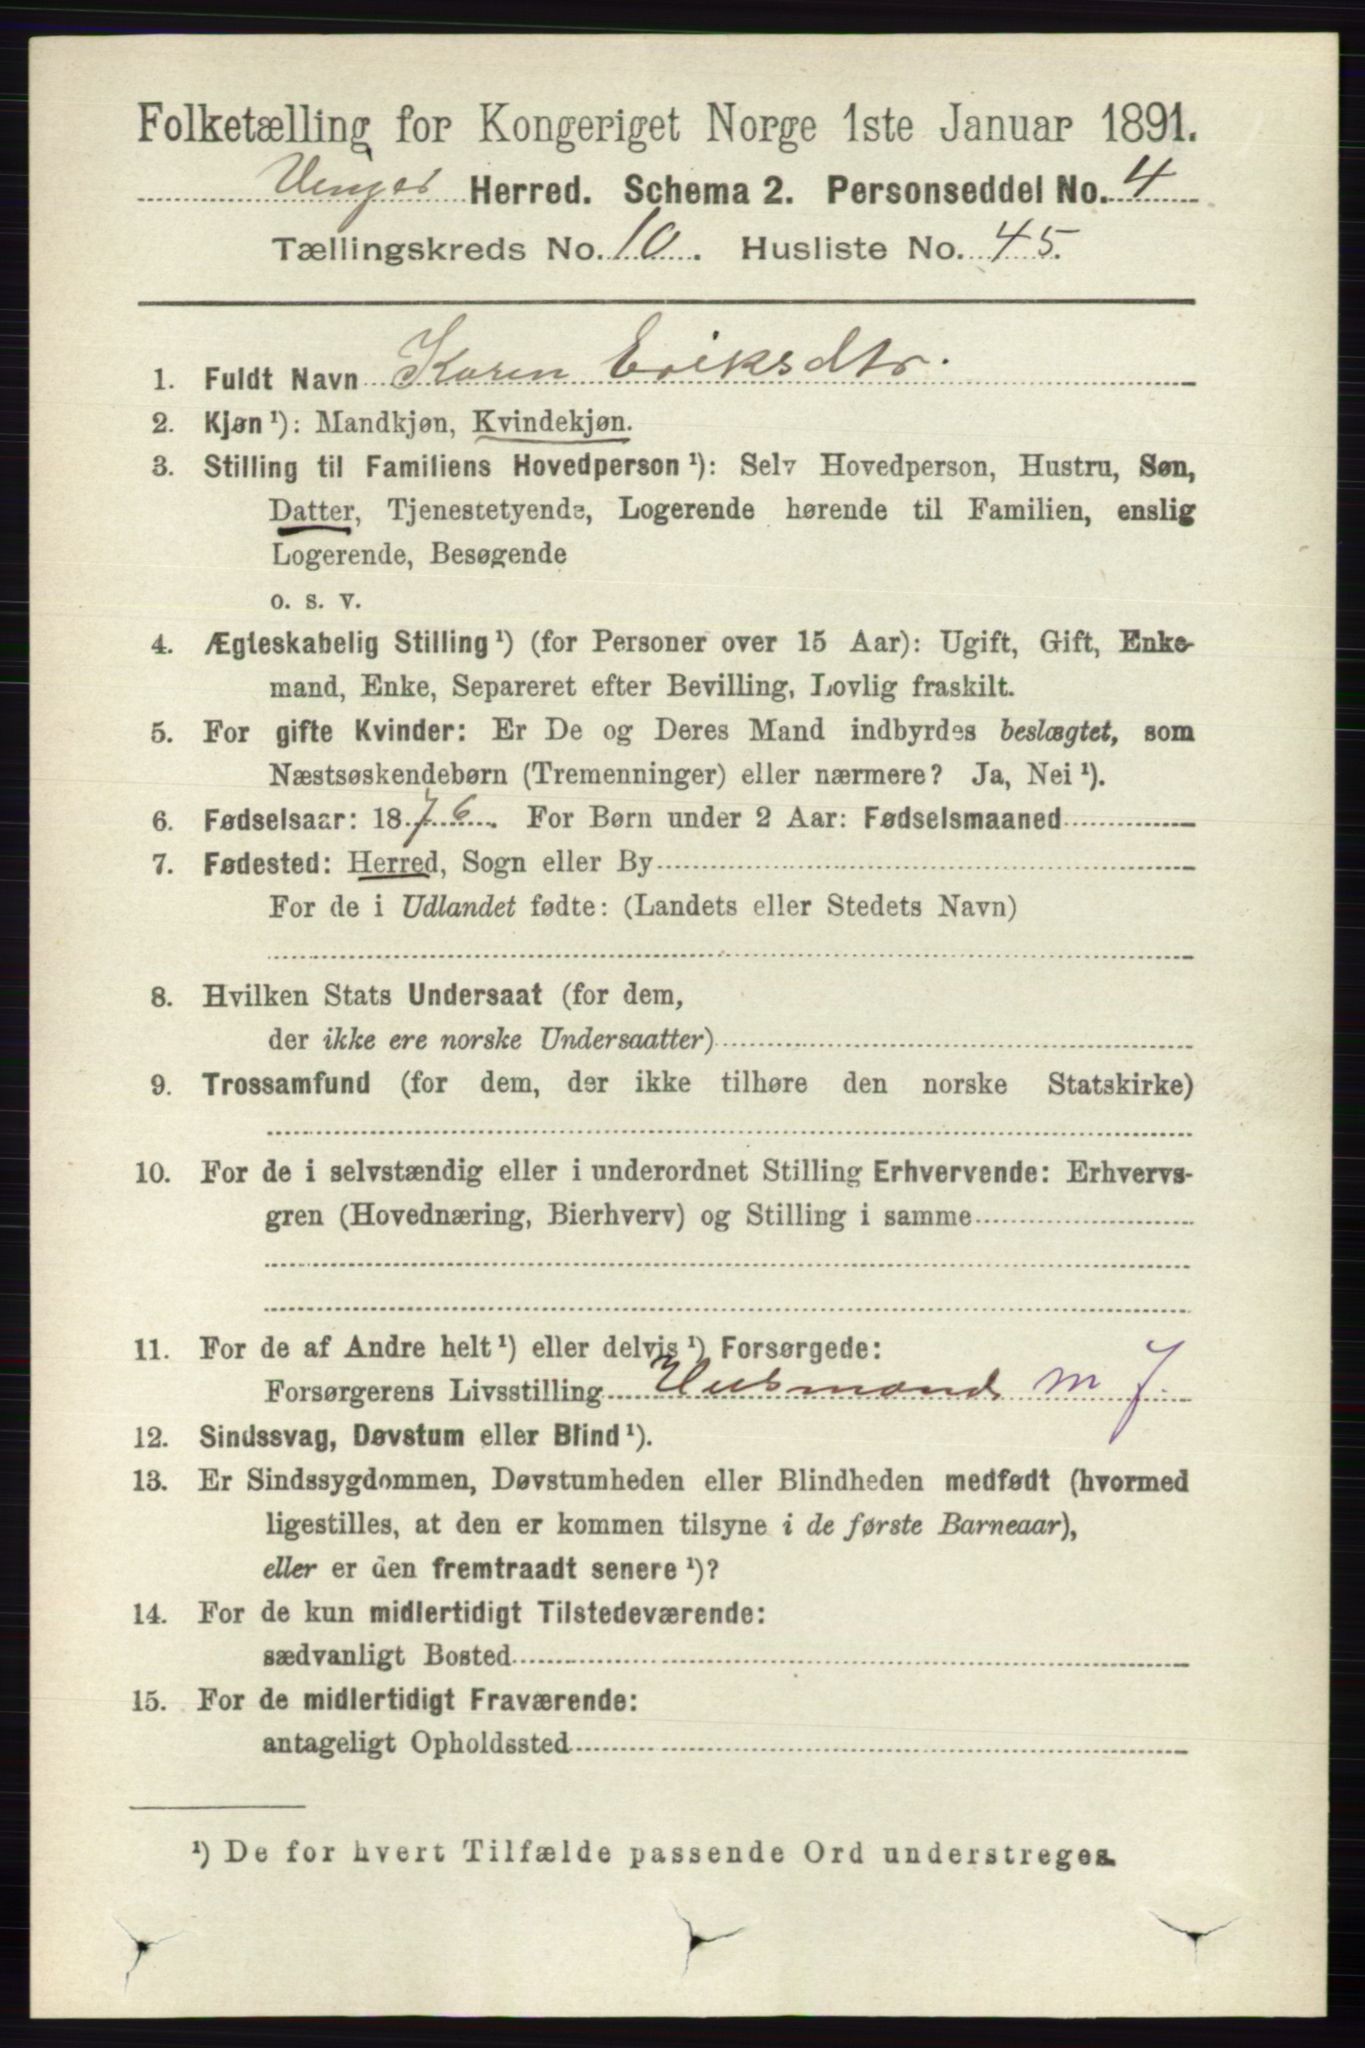 Folketælling for Kongeriget Norge 1ste Januar 1891.
Vinger Herred. Schema 2. Personseddel No. 4
Tællingskreds No. 10. Husliste No. 45.
1. Fuldt Navn Karen Eriksdtr.
2. Kjøn ¹): Mandkjøn, Kvindekjøn.
3. Stilling til Familiens Hovedperson ¹): Selv Hovedperson, Hustru, Søn,
Datter, Tjenestetyende, Logerende hørende til Familien, enslig
Logerende, Besøgende
o. s. v.
4. Ægteskabelig Stilling ¹) (for Personer over 15 Aar): Ugift, Gift, Enke-
mand, Enke, Separeret efter Bevilling, Lovlig fraskilt.
5. For gifte Kvinder: Er De og Deres Mand indbyrdes beslægtet, som
Næstsøskendebørn (Tremenninger) eller nærmere? Ja, Nei ¹).
6. Fødselsaar: 1876. For Børn under 2 Aar: Fødselsmaaned
7. Fødested: Herred, Sogn eller By
For de i Udlandet fødte: (Landets eller Stedets Navn)
8. Hvilken Stats Undersaat (for dem,
der ikke ere norske Undersaatter)
9. Trossamfund (for dem, der ikke tilhøre den norske Statskirke)
10. For de i selvstændig eller i underordnet Stilling Erhvervende: Erhvervs-
gren (Hovednæring, Bierhverv) og Stilling i samme
11. For de af Andre helt ¹) eller delvis ¹) Forsørgede:
Forsørgerens Livsstilling Husmand m J
12. Sindssvag, Døvstum eller Blind ¹).
13. Er Sindssygdommen, Døvstumheden eller Blindheden medfødt (hvormed
ligestilles, at den er kommen tilsyne i de første Barneaar),
eller er den fremtraadt senere ¹)?
14. For de kun midlertidigt Tilstedeværende:
sædvanligt Bosted
15. For de midlertidigt Fraværende:
antageligt Opholdssted
¹) De for hvert Tilfælde passende Ord understreges.